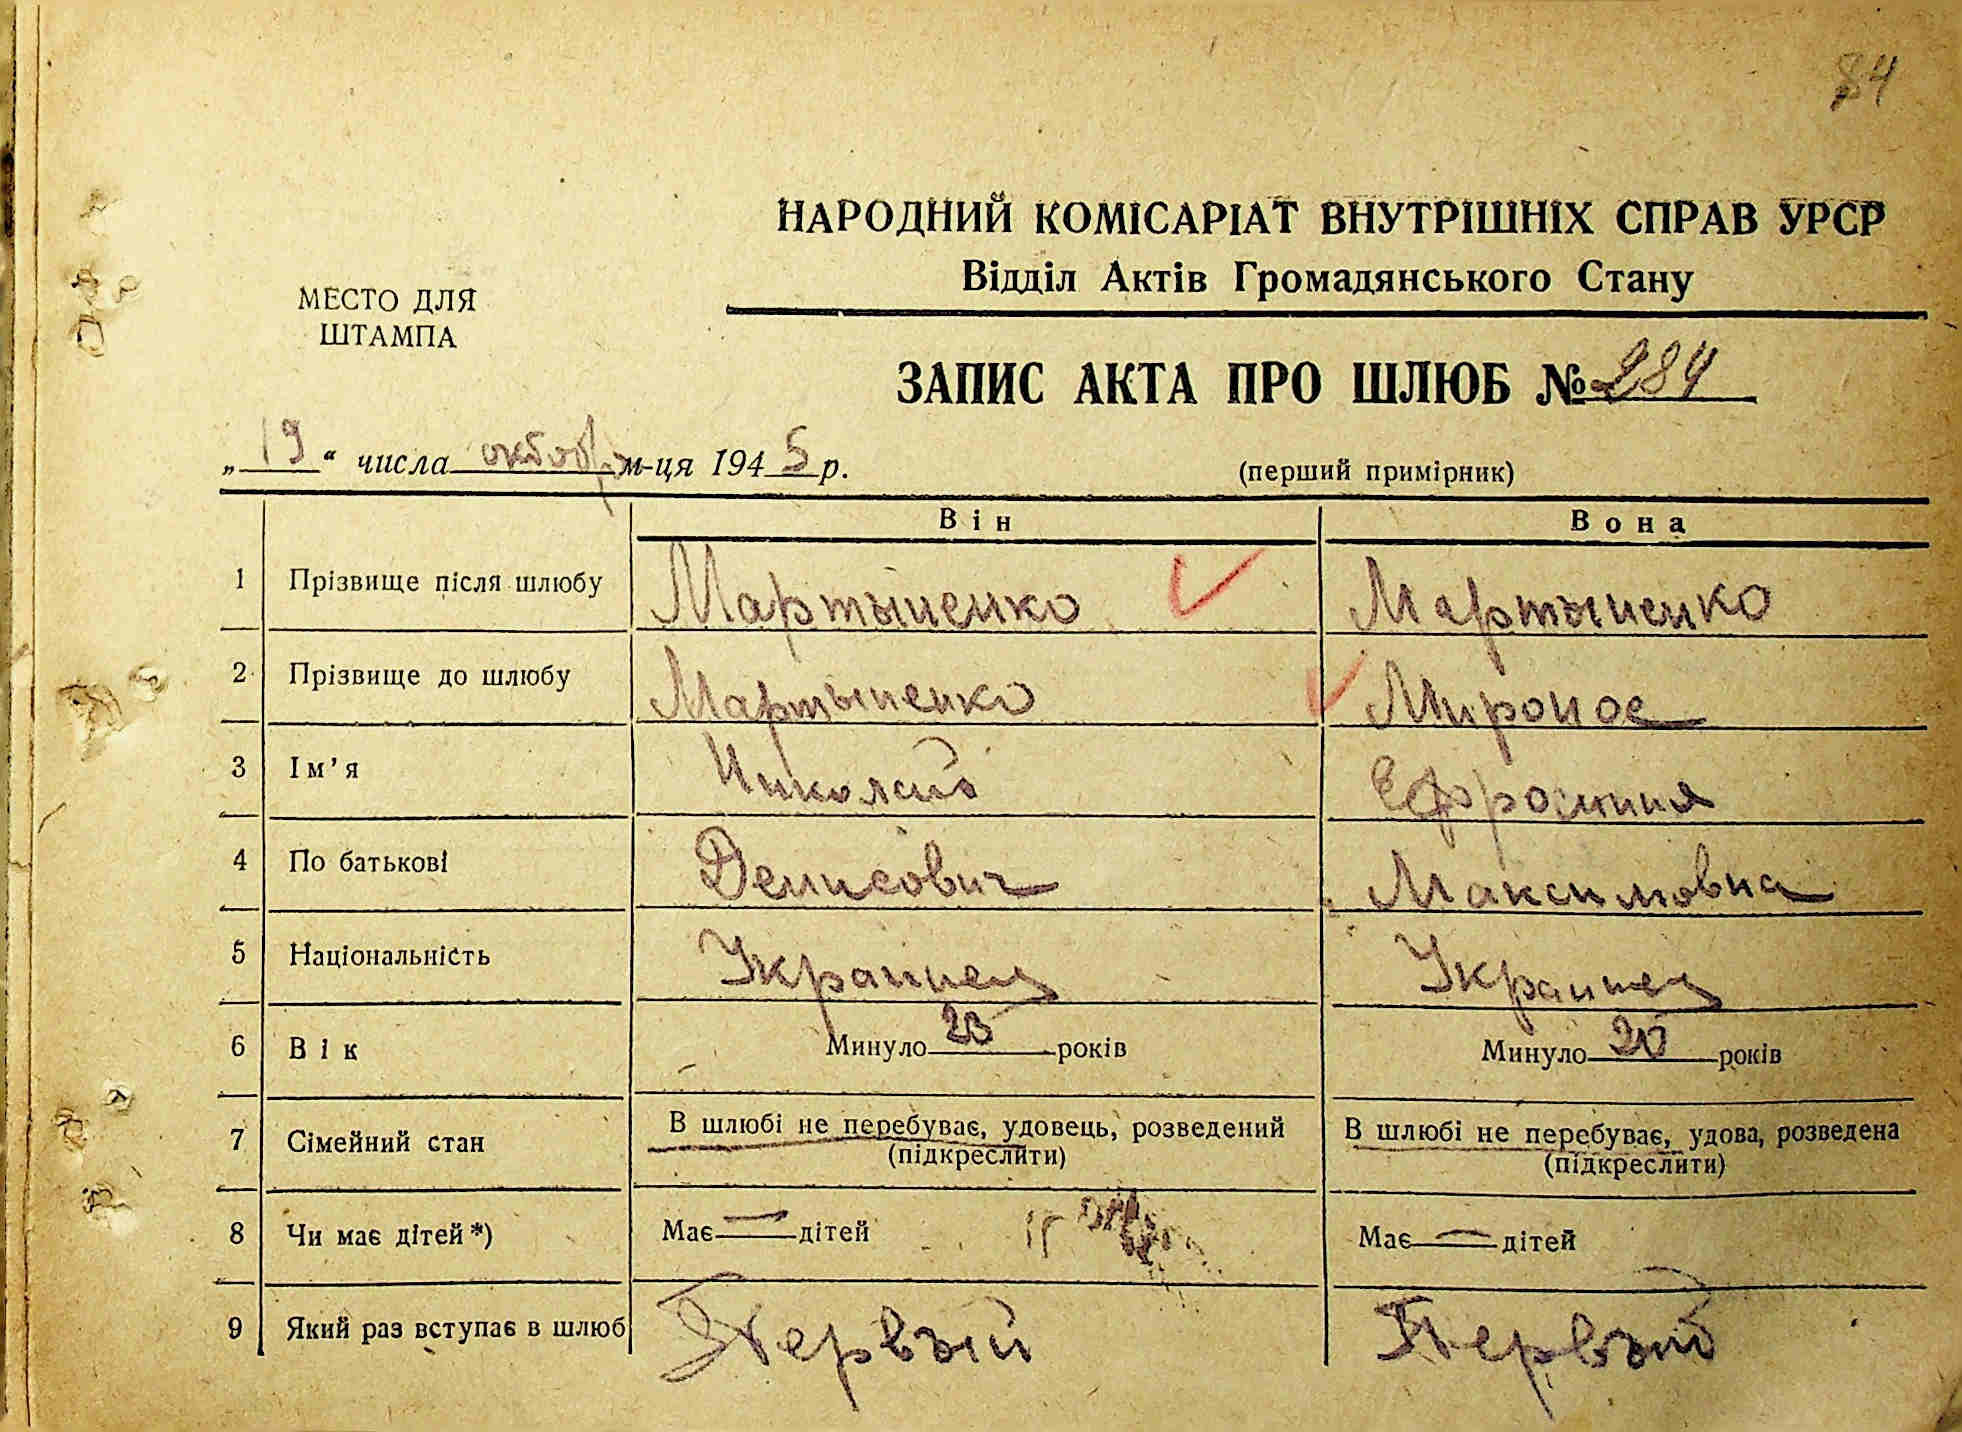 84
НАРОДНИЙ КОМІСАРІАТ ВНУТРІШНІХ СПРАВ УРСР
Відділ Актів Громадянського Стану
МЕСТО ДЛЯ
ШТАМПА
ЗАПИС АКТА ПРО ШЛЮБ № 284
„19“ числа октобр м-ця 1945 р.
(перший примірник)
Він Вона
1 Прізвище після шлюбу Мартыненко Мартыненко
2 Прізвище до шлюбу Мартыненко
3 Ім'я Николай Ефросиния
4 По батькові Денисович Максимовна
5 Національність Украинец Украинец
6 Вік Минуло 23 років Минуло 20 років
7 Сімейний стан В шлюбі не перебуває, удовець, розведений (підкреслити) В шлюбі не перебуває, удова, розведена (підкреслити)
8 Чи має дітей *) Має — дітей Має — дітей
9 Який раз вступає в шлюб Первый Первый